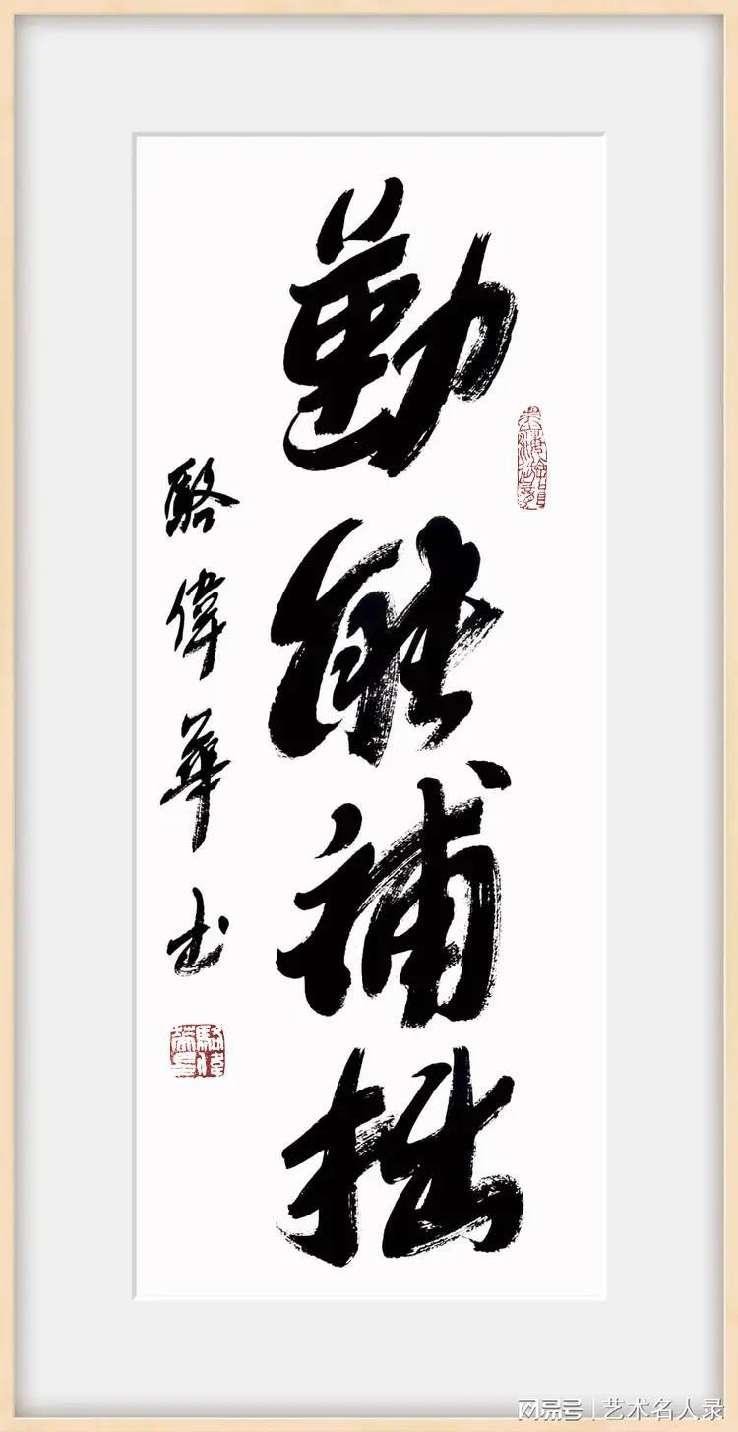 勤能補拙
駱偉華书
網易號|艺术名人录